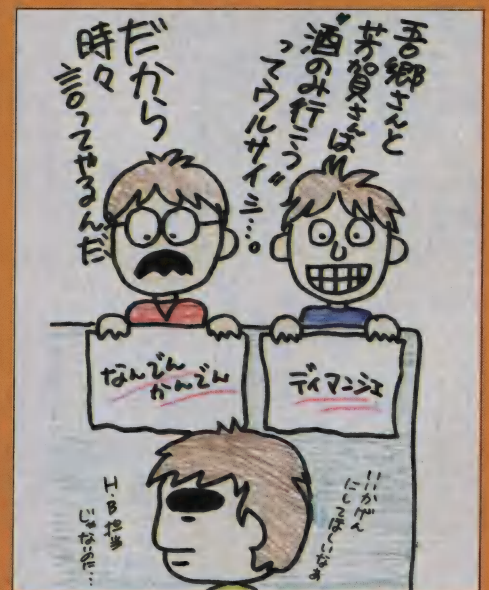 吾郷さんと
芳賀さんは
〝酒のみ行こう〟
ってウルサイシ…。
だから
時々
言ってやるんだ
なんでん
かんでん
ディマンシェ
いいかげん
にしてほしいなあ
H・B担当
じゃないのに…